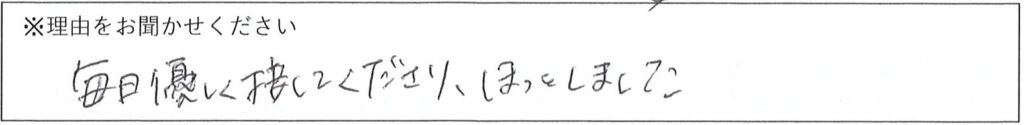 ※理由をお聞かせください
毎日優しく接してくださり、ほっとしました